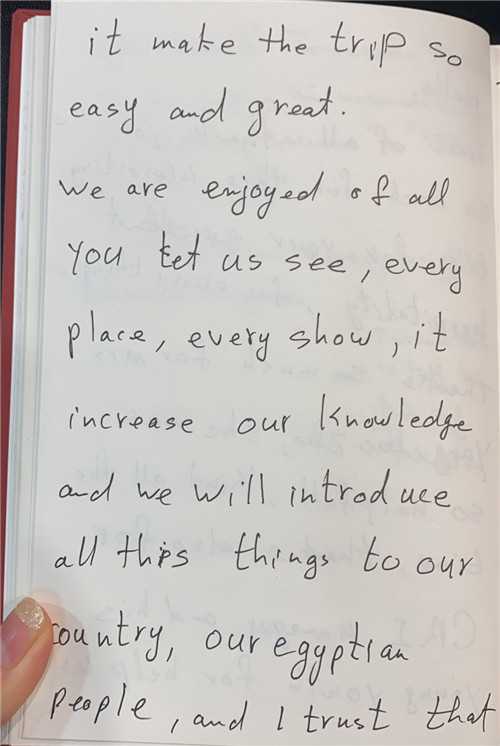 it make the trip so
easy and great.
we are enjoyed of all
you let us see, every
place, every show, it
increase our knowledge
and we will introduce
all this things to our
country, our egyptian
people, and I trust that